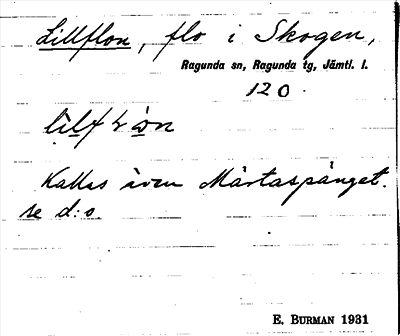 Lillflon, flo i Skogen,
Ragunda sn, Ragunda tg, Jämtl. l.
120.
Kallas även Mårtaspånget.
se d:o
E. BURMAN 1931